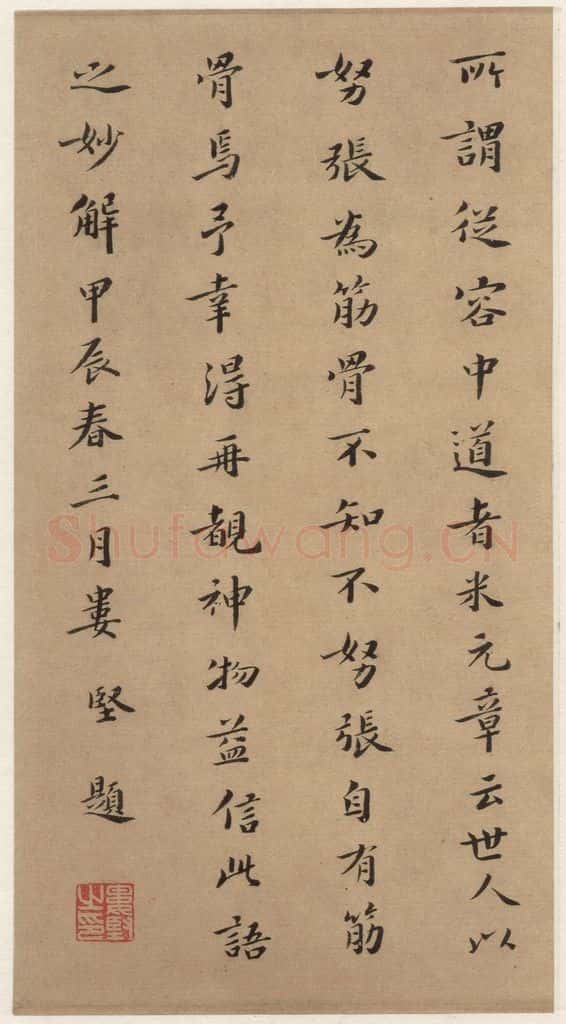 所謂從容中道者米元章云世人以
努張為筋骨不知不努張自有筋
骨焉予幸得再覩神物益信此語
之妙解甲辰春三月婁堅題
婁堅之印
Shufawang.CN